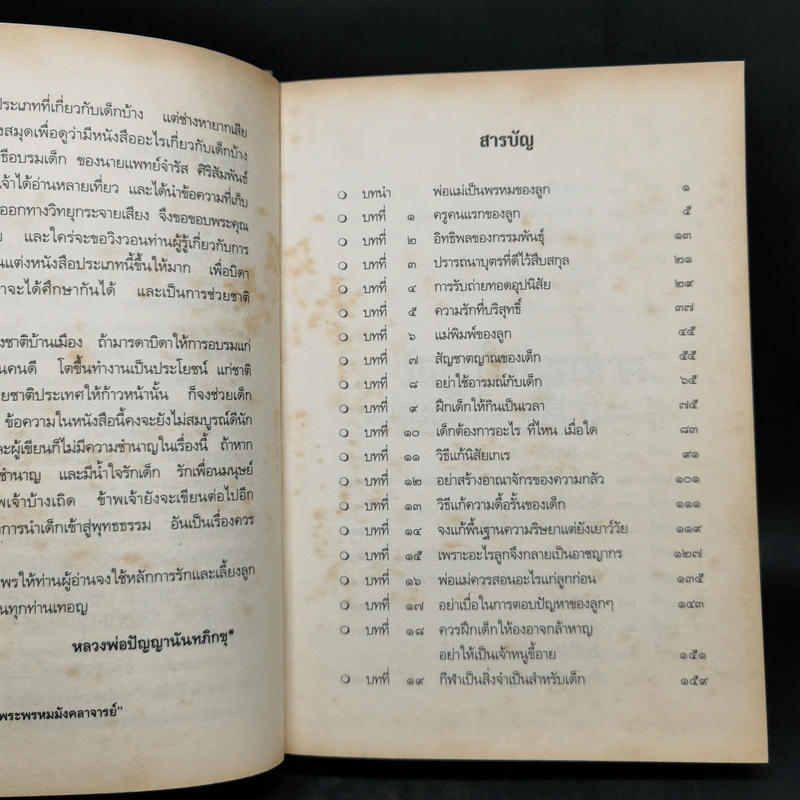 ประเภทที่เกี่ยวกับเด็กบ้าง แต่ช่างหายากเสีย
งสมุดเพื่อดูว่ามีหนังสืออะไรเกี่ยวกับเด็กบ้าง
ธีอบรมเด็ก ของนายแพทย์จำรัส ศิริสัมพันธ์
เจ้าได้อ่านหลายเที่ยว และได้นำข้อความที่เก็บ
ออกทางวิทยุกระจายเสียง จึงขอขอบพระคุณ
ย และใคร่จะขอวิงวอนท่านผู้รู้เกี่ยวกับการ
นแต่งหนังสือประเภทนี้ขึ้นให้มาก เพื่อบิดา
าจะได้ศึกษากันได้ และเป็นการช่วยชาติ
งชาติบ้านเมือง ถ้ามารดาบิดาให้การอบรมแก่
นคนดี โตขึ้นทำงานเป็นประโยชน์ แก่ชาติ
ยชาติประเทศให้ก้าวหน้านั้น ก็จงช่วยเด็ก
ข้อความในหนังสือนี้คงจะยังไม่สมบูรณ์ดีนัก
ละผู้เขียนก็ไม่มีความชำนาญในเรื่องนี้ ถ้าหาก
ชำนาญ และมีน้ำใจรักเด็ก รักเพื่อนมนุษย์
พเจ้าบ้างเถิด ข้าพเจ้ายังจะเขียนต่อไปอีก
การนำเด็กเข้าสู่พุทธธรรม อันเป็นเรื่องควร
พรให้ท่านผู้อ่านจงใช้หลักการรักและเลี้ยงลูก
นทุกท่านเทอญ
หลวงพ่อปัญญานันทภิกขุ*
พระพรหมมังคลาจารย์"
สารบัญ
❍ บทนำ พ่อแม่เป็นพรหมของลูก ๑
❍ บทที่ ๑ ครูคนแรกของลูก ๕
❍ บทที่ ๒ อิทธิพลของกรรมพันธุ์ ๑๓
❍ บทที่ ๓ ปรารถนาบุตรที่ดีไว้สืบสกุล ๒๑
❍ บทที่ ๔ การรับถ่ายทอดอุปนิสัย ๒๙
❍ บทที่ ๕ ความรักที่บริสุทธิ์ ๓๗
❍ บทที่ ๖ แม่พิมพ์ของลูก ๔๕
❍ บทที่ ๗ สัญชาตญาณของเด็ก ๕๕
❍ บทที่ ๘ อย่าใช้อารมณ์กับเด็ก ๖๕
❍ บทที่ ๙ ฝึกเด็กให้กินเป็นเวลา ๗๕
❍ บทที่ ๑๐ เด็กต้องการอะไร ที่ไหน เมื่อใด ๘๓
❍ บทที่ ๑๑ วิธีแก้นิสัยเกเร ๙๑
❍ บทที่ ๑๒ อย่าสร้างอาณาจักรของความกลัว ๑๐๑
❍ บทที่ ๑๓ วิธีแก้ความดื้อรั้นของเด็ก ๑๑๑
❍ บทที่ ๑๔ จงแก้พื้นฐานความริษยาแต่ยังเยาว์วัย ๑๑๙
❍ บทที่ ๑๕ เพราะอะไรลูกจึงกลายเป็นอาชญากร ๑๒๗
❍ บทที่ ๑๖ พ่อแม่ควรสอนอะไรแก่ลูกก่อน ๑๓๕
❍ บทที่ ๑๗ อย่าเบื่อในการตอบปัญหาของลูกๆ ๑๔๓
❍ บทที่ ๑๘ ควรฝึกเด็กให้องอาจกล้าหาญ
อย่าให้เป็นเจ้าหนูขี้อาย ๑๕๑
❍ บทที่ ๑๙ กีฬาเป็นสิ่งจำเป็นสำหรับเด็ก ๑๕๙